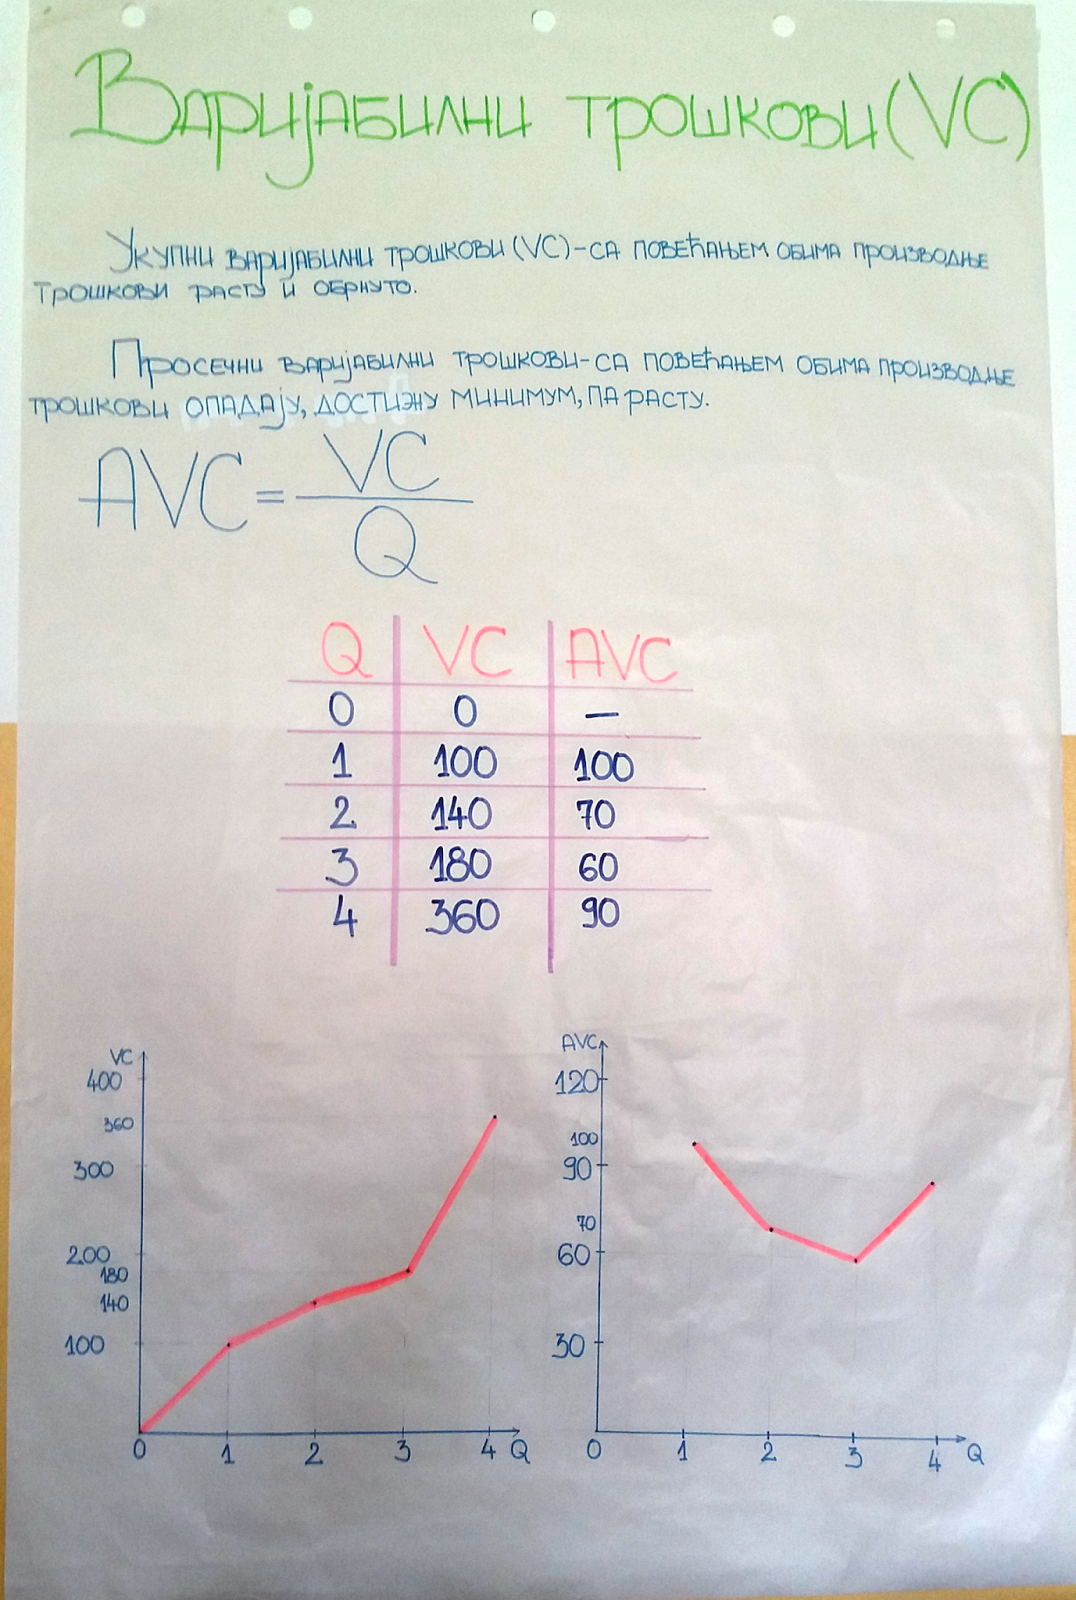 Варијабилни трошкови (VC)
Укупни варијабилни трошкови (VC) - са повећањем обима производње
трошкови расту и обрнуто.
Просечни варијабилни трошкови - са повећањем обима производње
трошкови опадају, достижу минимум, па расту.
AVC = VC / Q
Q VC AVC
0 0 —
1 100 100
2 140 70
3 180 60
4 360 90
VC
400
360
300
200
180
140
100
0 1 2 3 4 Q
AVC
120
100
90
70
60
30
0 1 2 3 4 Q